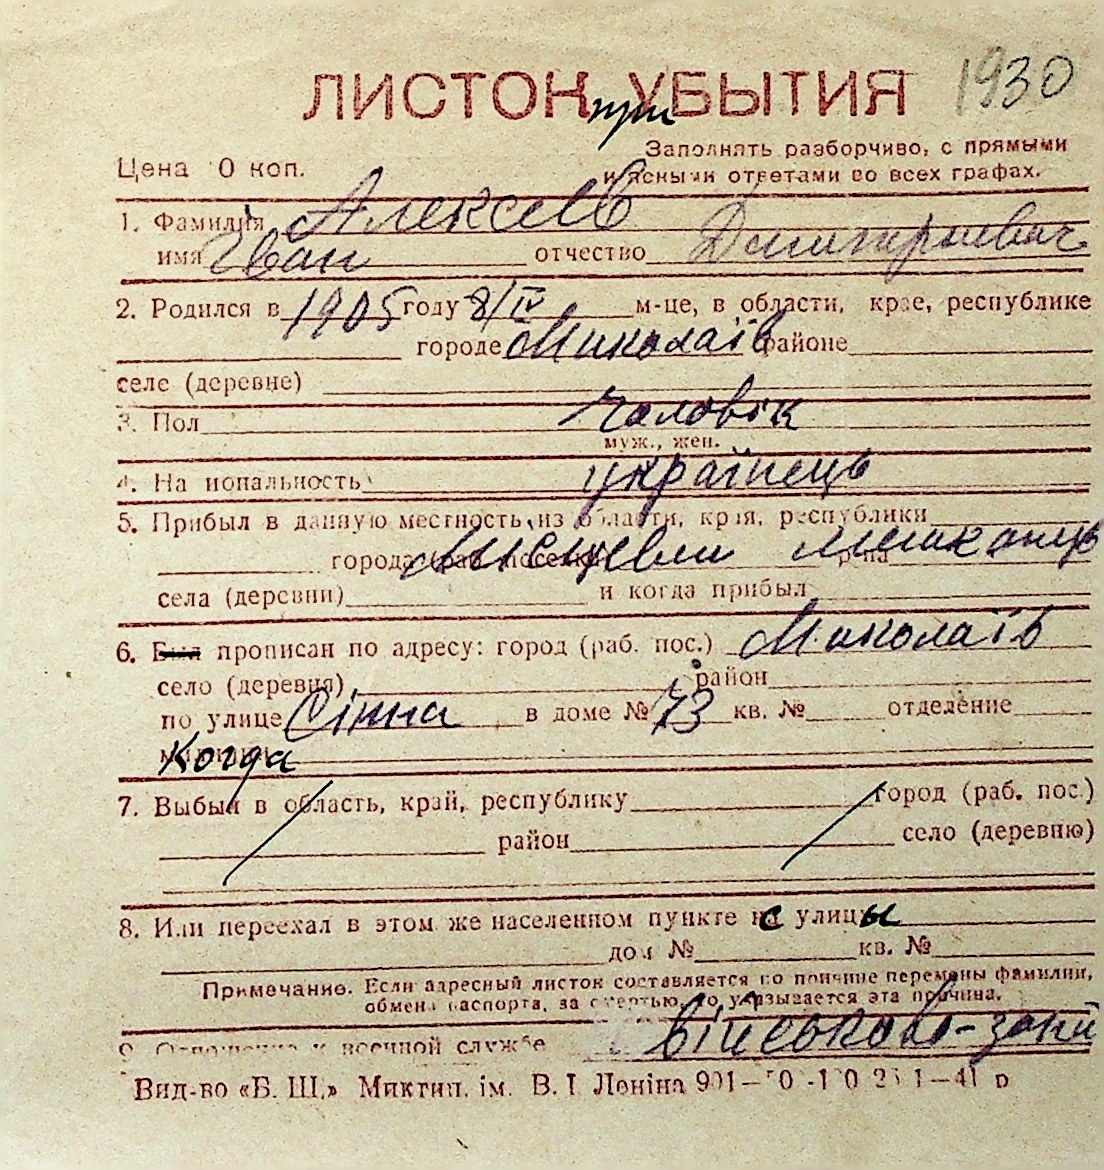 ЛИСТОК УБЫТИЯ 1930
при
Заполнять разборчиво, с прямыми
Цена 0 коп. и ясными ответами во всех графах.
1. Фамилия Алексеев
имя Іван отчество Дмитриевич
2. Родился в 1905 году 8/IV м-це, в области, крае, республике
городе Миколаїв районе
селе (деревне)
3. Пол чоловік
муж., жен.
4. Национальность українець
5. Прибыл в данную местность из области, края, республики
города (раб. поселка) мешканець р-на
села (деревни) и когда прибыл
6. Был прописан по адресу: город (раб. пос.) Миколаїв
село (деревня) район
по улице Сінна в доме № 73 кв. № отделение
Когда
7. Выбыл в область, край, республику город (раб. пос.)
район село (деревню)
8. Или переехал в этом же населенном пункте с улицы
дом № кв. №
Примечание. Если адресный листок составляется по причине перемены фамилии,
обмена паспорта, за смертью, то указывается эта причина.
9. Отношение к военной службе військово-зоб
Вид-во «Б. Ш.» Миктип. ім. В. І. Леніна